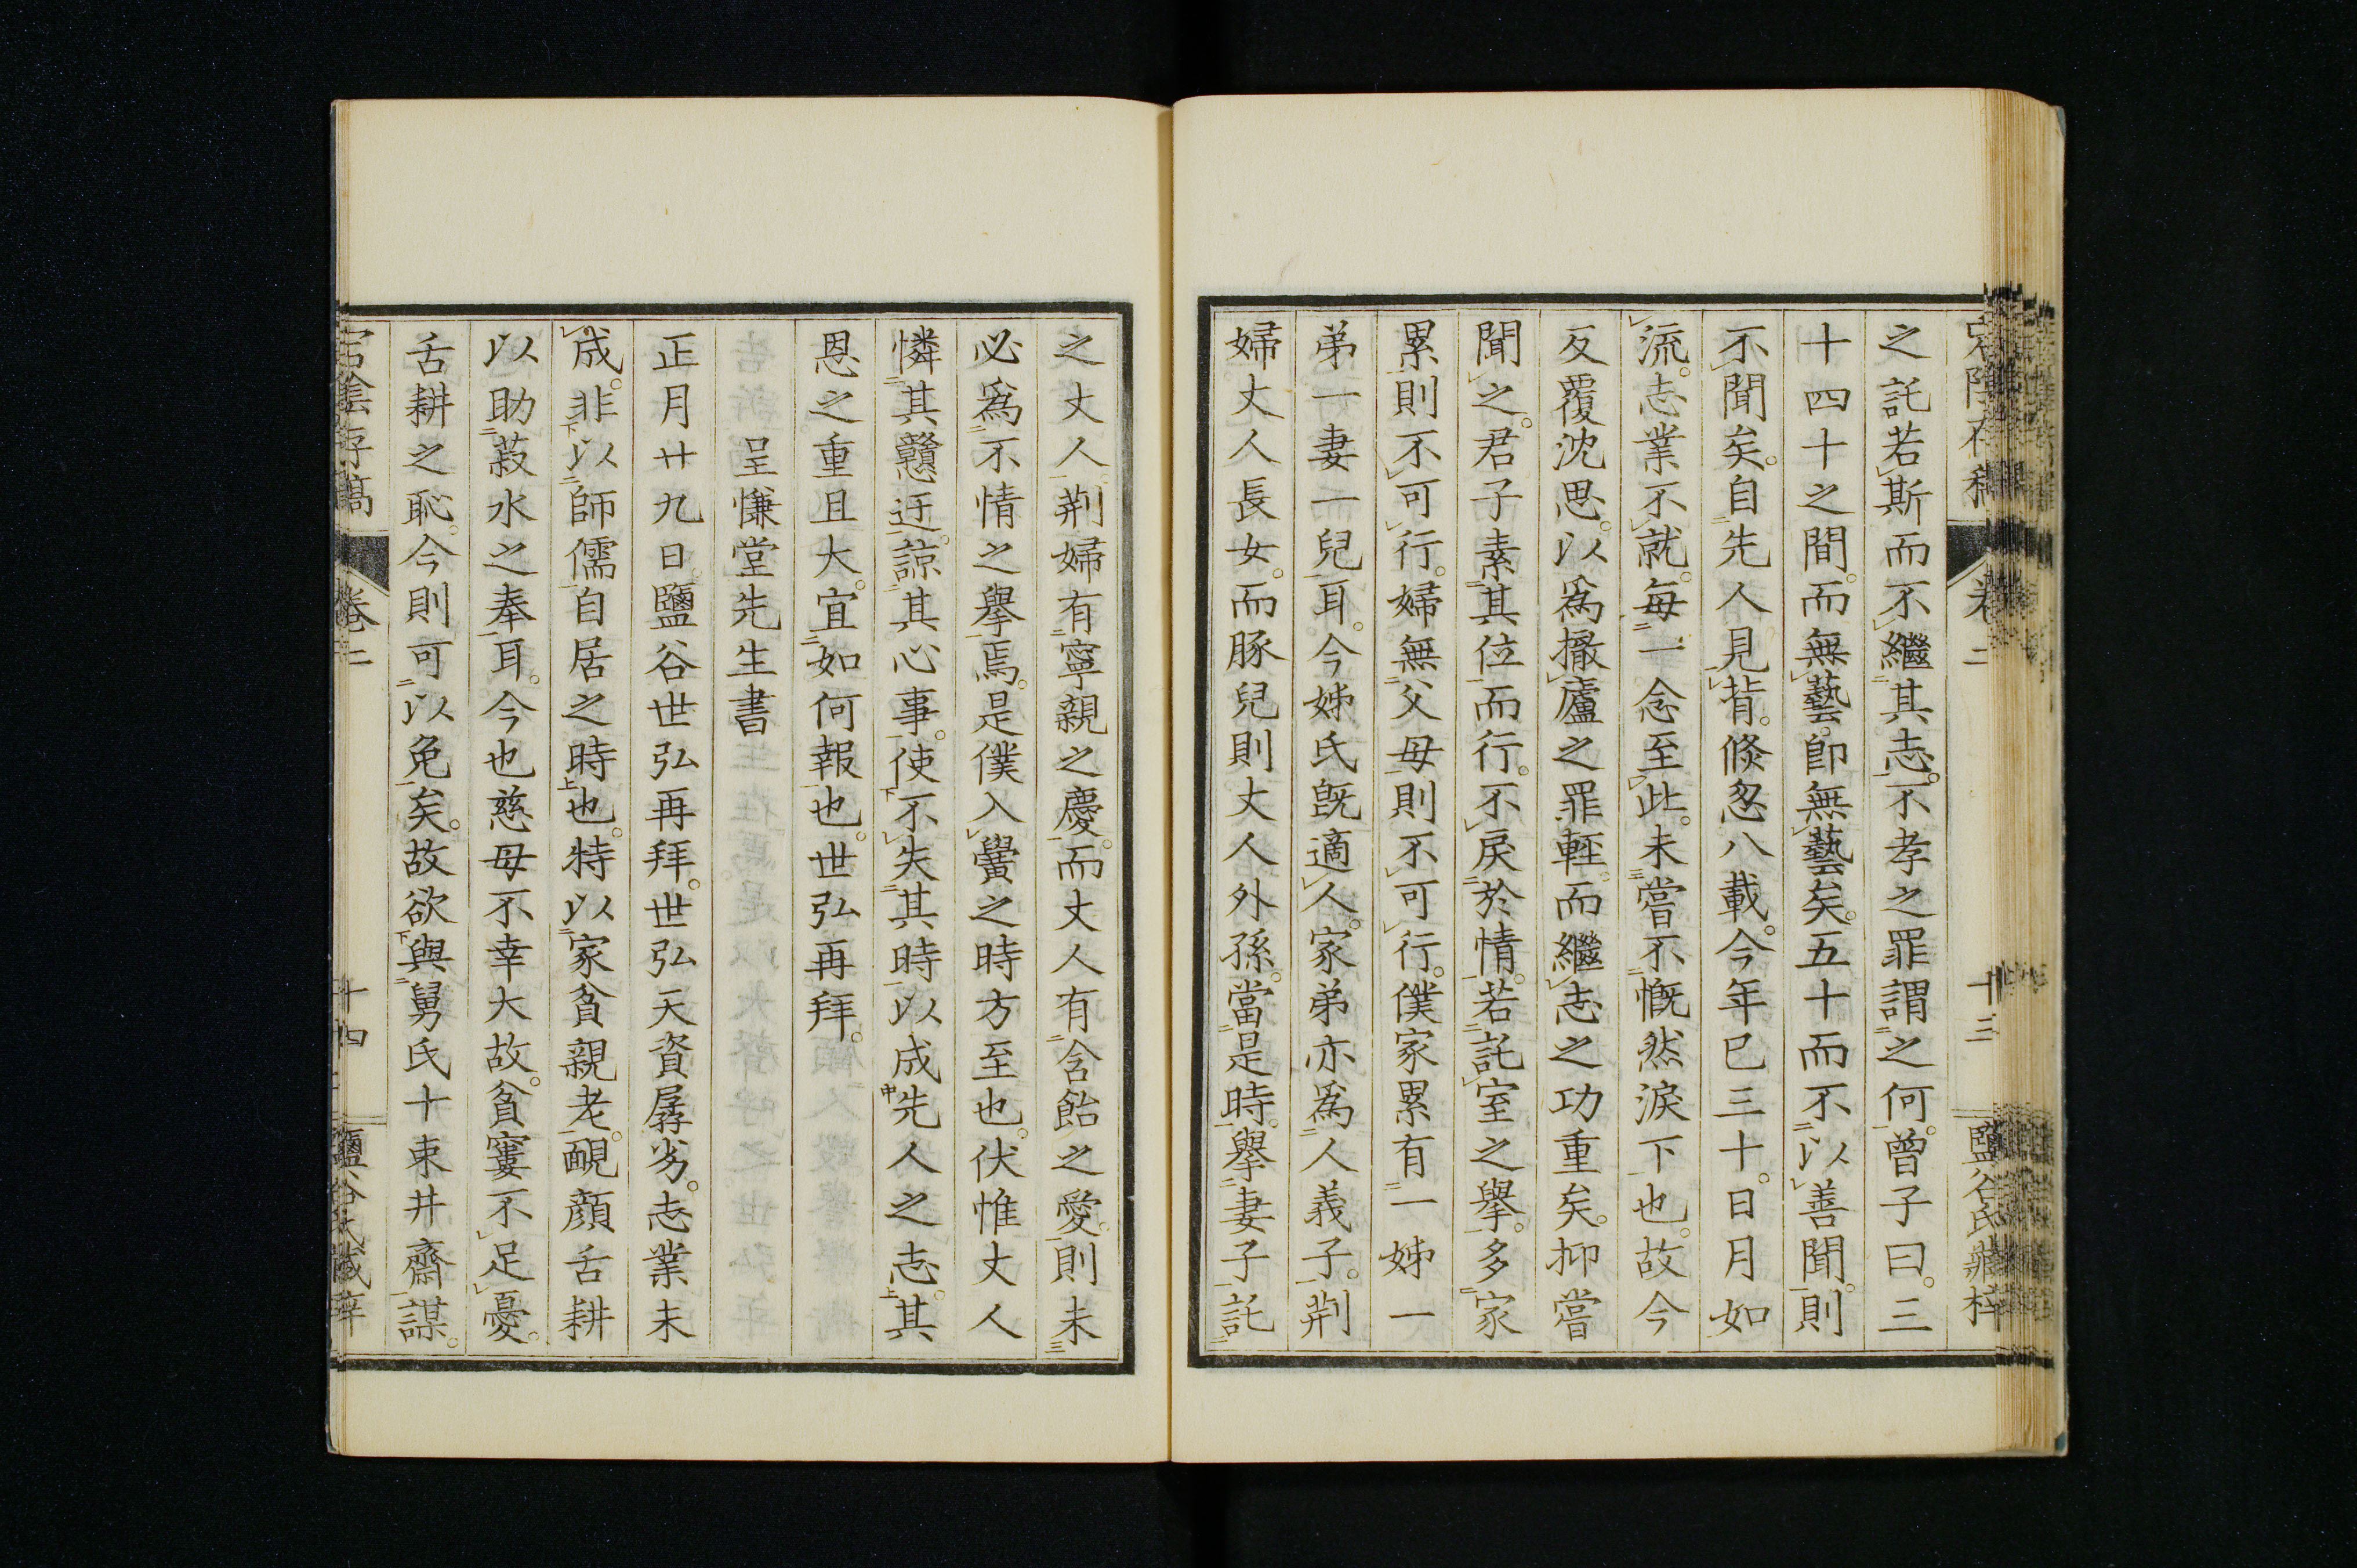 之託若斯而不繼其志。不孝之罪謂之何。曾子曰。三
十四十之間。而無藝。卽無藝矣。五十而不以善聞。則
不聞矣。自先人見背。倐忽八載。今年已三十。日月如
流。志業不就。每一念至此。未嘗不慨然淚下也。故今
反覆沈思。以爲撤廬之罪輕。而繼志之功重矣。抑嘗
聞之。君子素其位而行。不戾於情。若託室之擧。多家
累則不可行。婦無父母則不可行。僕家累有一姊一
弟一妻一兒耳。今姊氏既適人。家弟亦爲人義子。荆
婦丈人長女。而豚兒則丈人外孫。當是時。擧妻子託
之丈人。荆婦有寧親之慶。而丈人有含飴之愛。則未
必爲不情之擧焉。是僕入黌之時方至也。伏惟丈人
憐其戇迂。諒其心事。使不失其時。以成先人之志。其
恩之重且大。宜如何報也。世弘再拜。
呈慊堂先生書
正月廿九日。鹽谷世弘再拜。世弘天資孱劣。志業未
成。非以師儒自居之時也。特以家貧親老。靦顔舌耕
以助菽水之奉耳。今也慈母不幸大故。貧窶不足憂。
舌耕之恥。今則可以免矣。故欲與舅氏十束井齋謀。
宕陰存稿 卷二 十四 鹽谷氏藏梓
卷二 十三 鹽谷氏藏梓